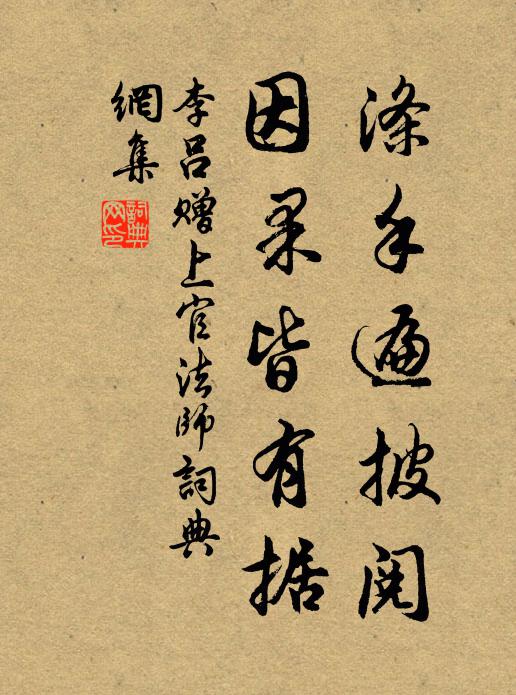 涤手遍披阅
因果皆有据
李吕赠上官法師詞典
網集
詞典网印